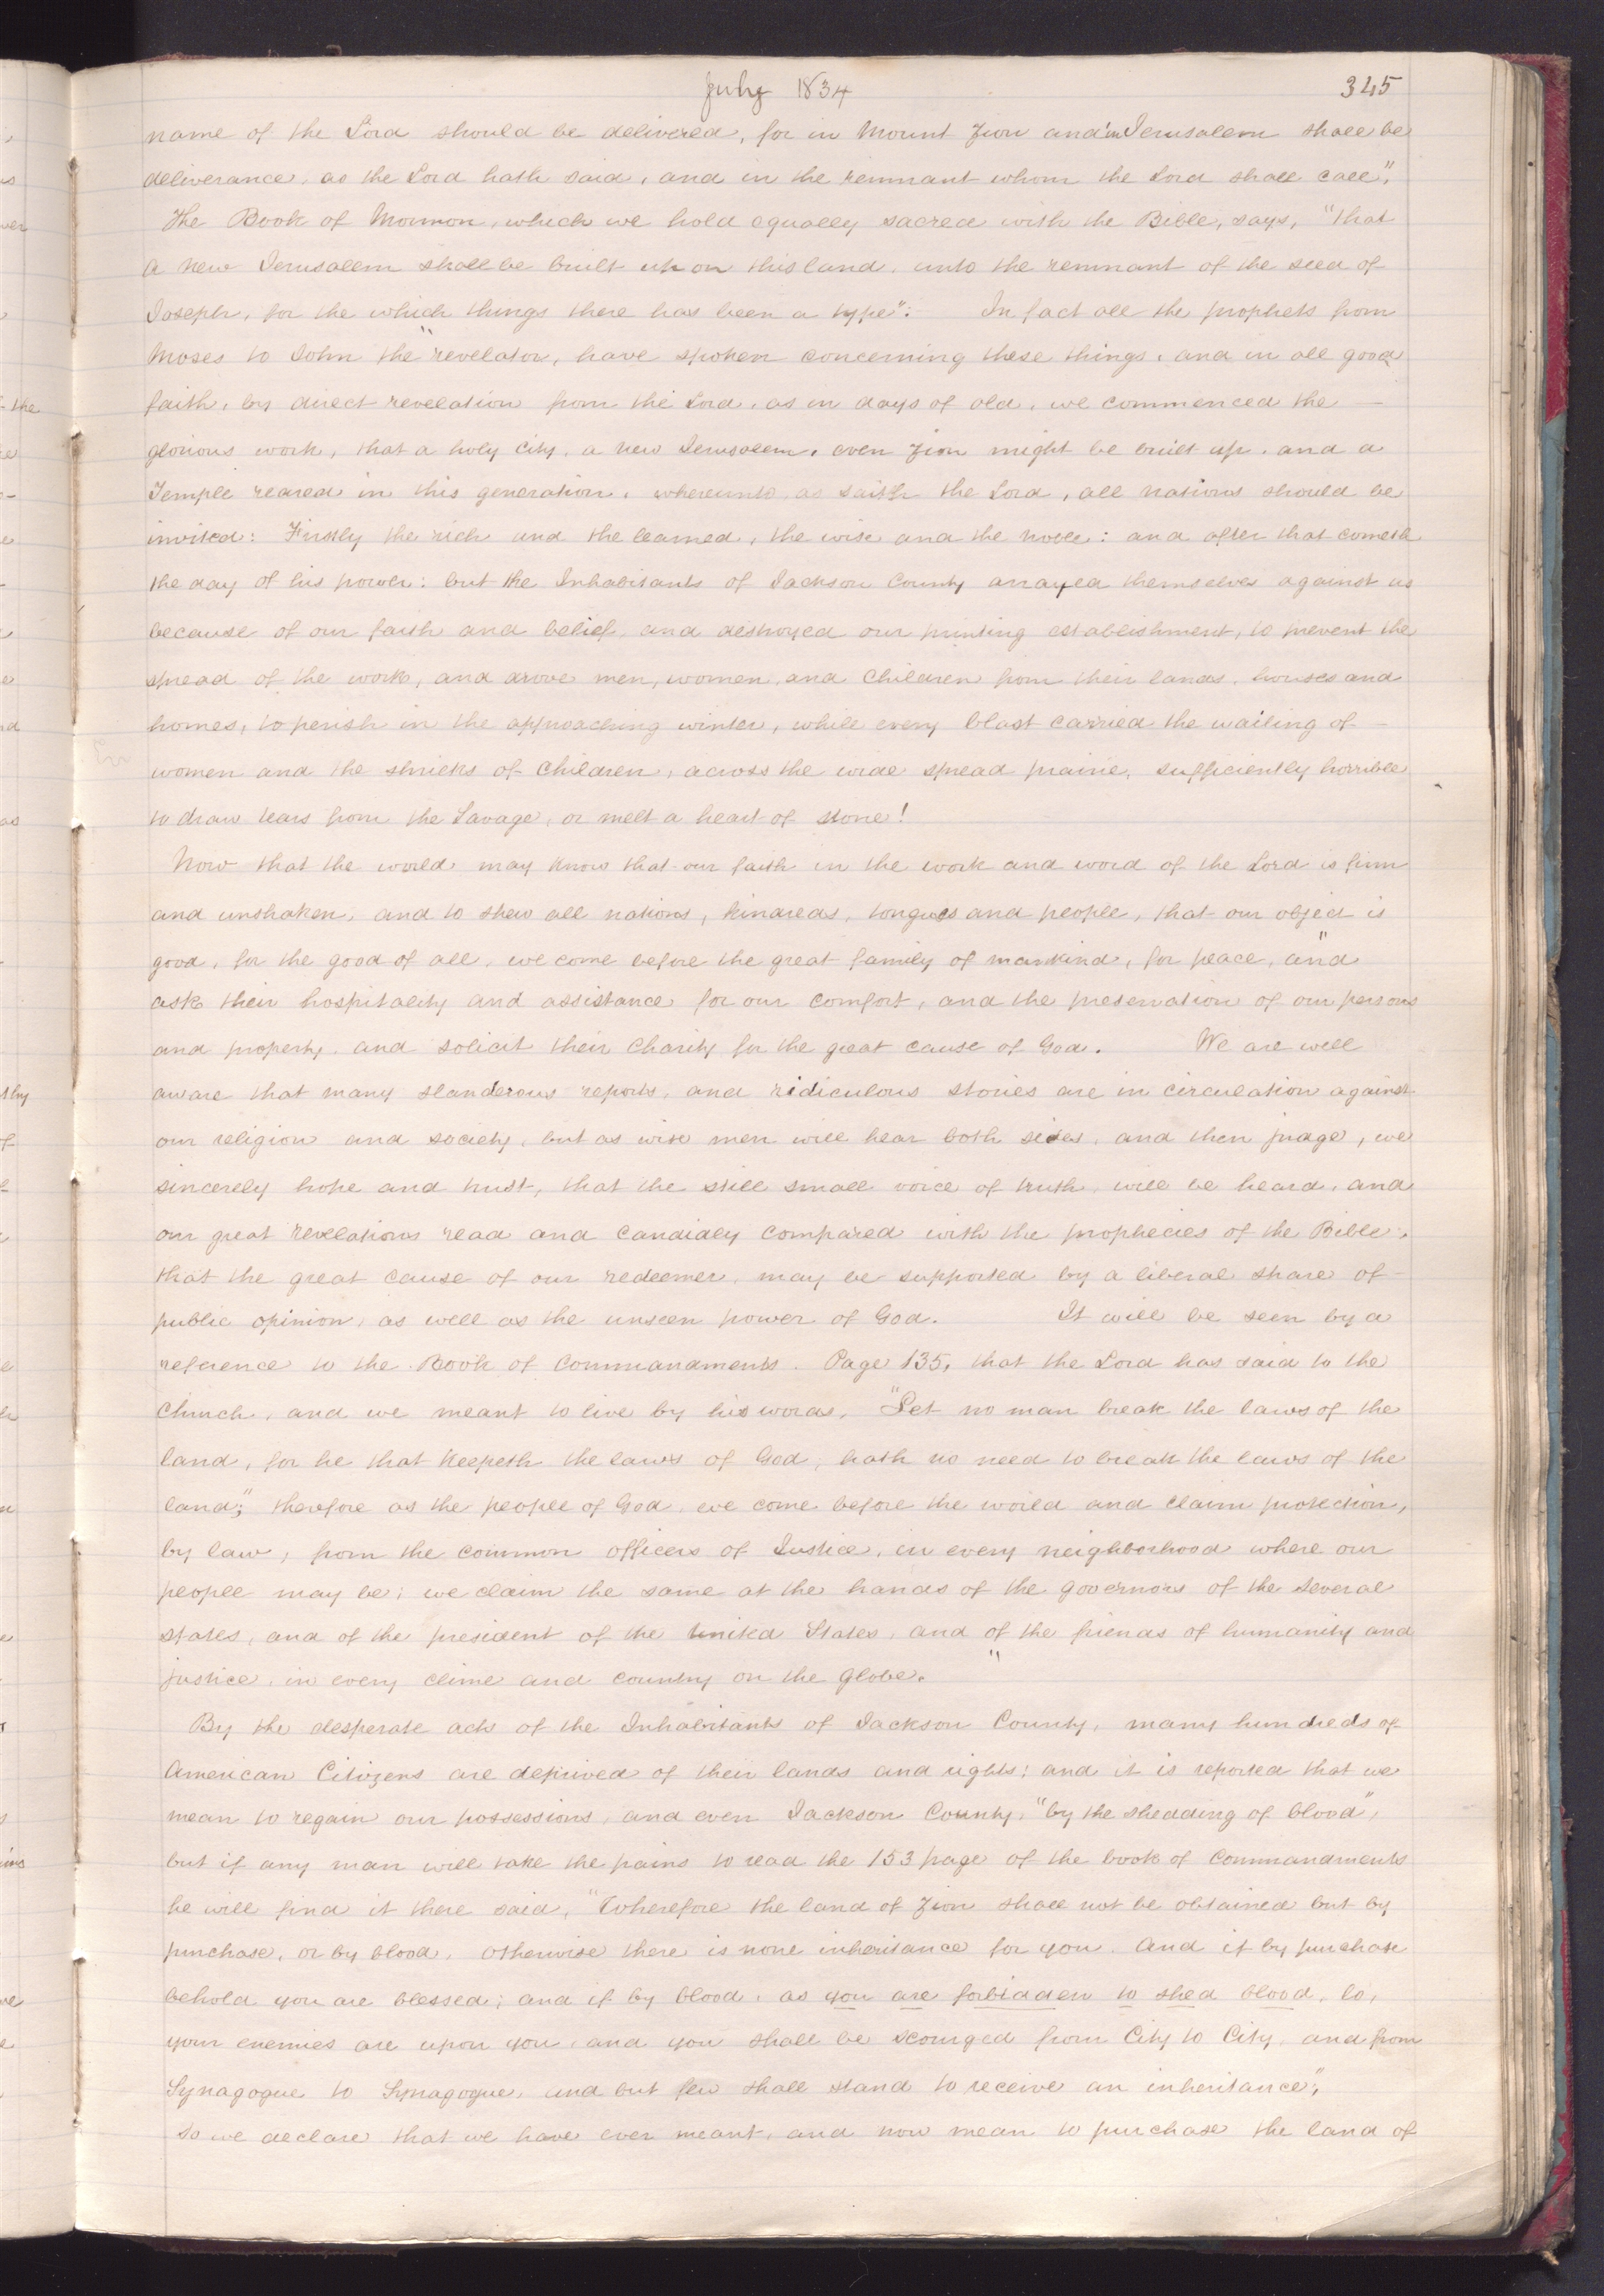 July 1834 345
name of the Lord should be delivered, for in Mount Zion and in Jerusalem shall be
deliverance, as the Lord hath said, and in the remnant whom the Lord shall call".
The Book of Mormon, which we hold equally sacred with the Bible, says, "that
a new Jerusalem shall be built up on this land, unto the remnant of the seed of
Joseph, for the which things there has been a type". In fact all the prophets from
Moses to John the revelator, have spoken concerning these things, and in all good
faith, by direct revelation from the Lord, as in days of old, we commenced the —
glorious work, that a holy city, a new Jerusalem, even Zion might be built up, and a
Temple reared in this generation, whereunto, as saith the Lord, all nations should be
invited: Firstly the rich and the learned, the wise and the noble: and after that cometh
the day of his power: but the Inhabitants of Jackson County arrayed themselves against us
because of our faith and belief, and destroyed our printing establishment, to prevent the
spread of the work, and drove men, women, and Children from their lands, houses and
homes, to perish in the approaching winter, while every blast carried the wailing of —
women and the shrieks of Children, across the wide spread prairie, sufficiently horrible
to draw tears from the Savage, or melt a heart of stone!
Now that the world may know that our faith in the work and word of the Lord is firm
and unshaken, and to shew all nations, kindreds, tongues and people, that our object is
good, for the good of all, we come before the great family of mankind, for peace, and
ask their hospitality and assistance for our comfort, and the preservation of our persons
and property, and solicit their Charity for the great cause of God. We are well
aware that many slanderous reports, and ridiculous stories are in circulation against
our religion and society, but as wise men will hear both sides, and then judge, we
sincerely hope and trust, that the still small voice of truth, will be heard, and
our great revelations read and candidly compared with the prophecies of the Bible,
that the great cause of our redeemer, may be supported by a liberal share of
public opinion, as well as the unseen power of God. It will be seen by a
reference to the Book of Commandments. Page 135, that the Lord has said to the
Church, and we meant to live by his words, "Let no man break the laws of the
land, for he that keepeth the laws of God, hath no need to break the laws of the
land;" therefore as the people of God, we come before the world and claim protection,
by law, from the common officers of Justice, in every neighborhood where our
people may be; we claim the same at the hands of the governors of the several
states, and of the president of the United States, and of the friends of humanity and
justice, in every clime and country on the globe.
By the desperate acts of the Inhabitants of Jackson County, many hundreds of
American Citizens are deprived of their lands and rights: and it is reported that we
mean to regain our possessions, and even Jackson County, "by the shedding of blood",
but if any man will take the pains to read the 153 page of the book of Commandments
he will find it there said, "Wherefore the land of Zion shall not be obtained but by
purchase, or by blood, otherwise there is none inheritance for you. And if by purchase
behold you are blessed; and if by blood, as you are forbidden to shed blood, lo,
your enemies are upon you, and you shall be scourged from City to City, and from
Synagogue to Synagogue, and but few shall stand to receive an inheritance",
So we declare that we have ever meant, and now mean to purchase the land of